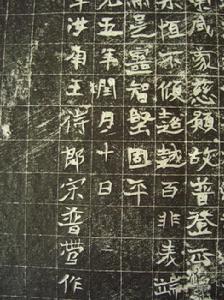 咸蒙慈願故普登正
恒不傾超越百非表端
是靈智堅固平
元五年閏月十日
南王侍郎宋普營作